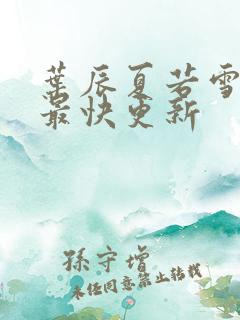 葉辰夏若雪
最快更新
孫守增
未经同意禁止转载